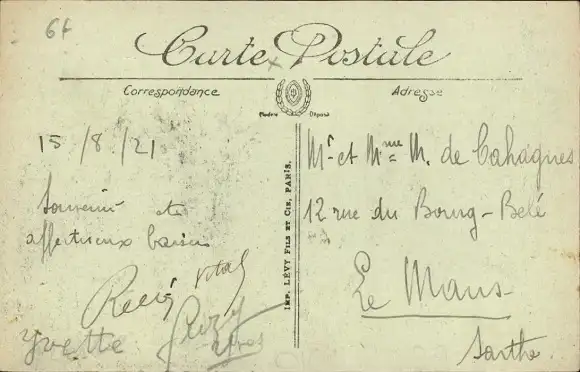 6f
Carte Postale
Correspondance
Adresse
Modèle Déposé
15/8/21
Souvenir et
affectueux baisers
René Vital
Yvette Suzy
IMP. LÉVY FILS ET CIE, PARIS.
Mr et Mme M. de Cahagnes
12 rue du Bourg-Belé
Le Mans
Sarthe